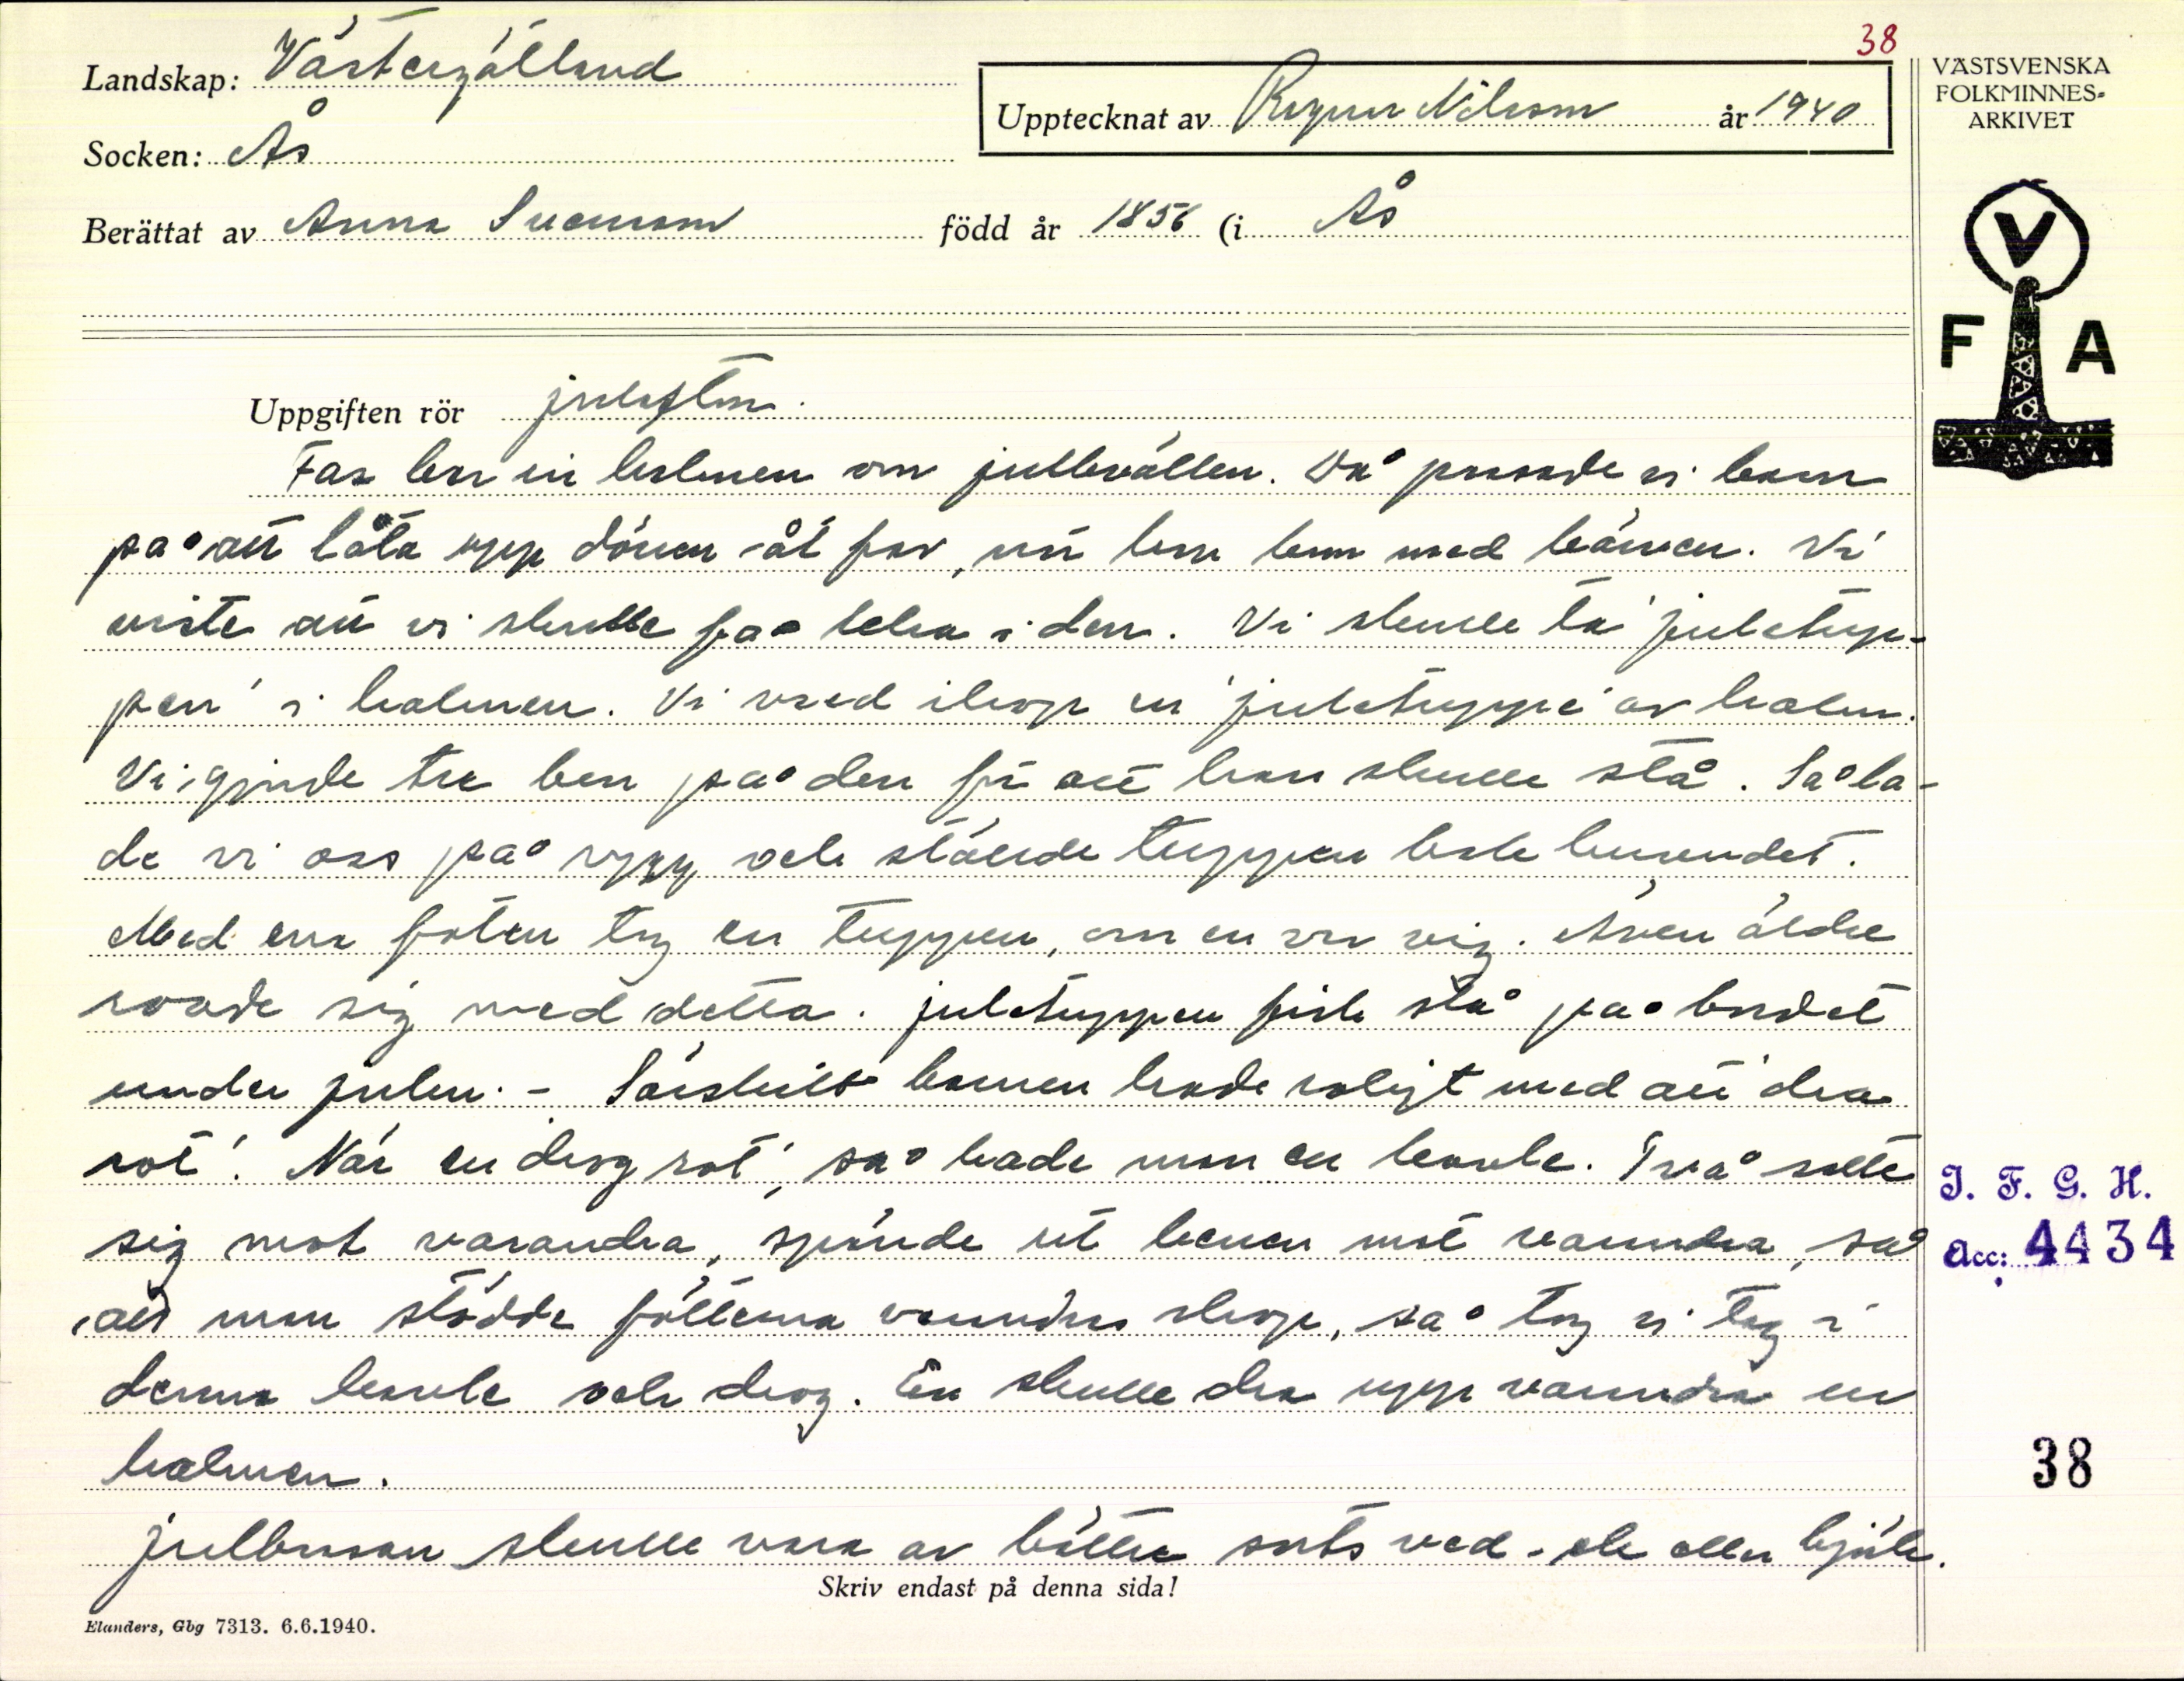 38
Landskap: Västergötland
Upptecknat av Ragnar Nilsson år 1940
VÄSTSVENSKA
FOLKMINNES-
ARKIVET
Socken: Ås
Berättat av Anna Svensson född år 1856 (i Ås
V
F A
Uppgiften rör julafton.
Far bar in halmen om julkvällen. Då passade vi barn
på att låta upp dörren åt far, när han kom med bören. Vi
viste att vi skulle få leka i den. Vi skulle ta 'juletup-
pen' i halmen. Vi vred ihop en 'juletuppe' av halm.
Vi gjorde tre ben på den för att han skulle stå. Så la-
de vi oss på rygg och ställde tuppen bak huvudet.
Med ena foten tog en tuppen, om en var vig. Även äldre
roade sig med detta. Juletuppen fick stå på bordet
under julen. - Särskilt barnen hade roligt med att 'dra
rot'. När en 'drog rot', så hade man en kavle. Två satte
sig mot varandra, spände ut benen mot varandra, så
att man stödde fötterna varandras ihop, så tog vi tag i
denna kavle och drog. En skulle dra upp varandra ur
halmen.
Julbrasan skulle vara av bättre sorts ved - ek eller björk.
J. F. G. H.
Acc: 4434
38
Skriv endast på denna sida!
Elanders, Gbg 7313. 6.6.1940.